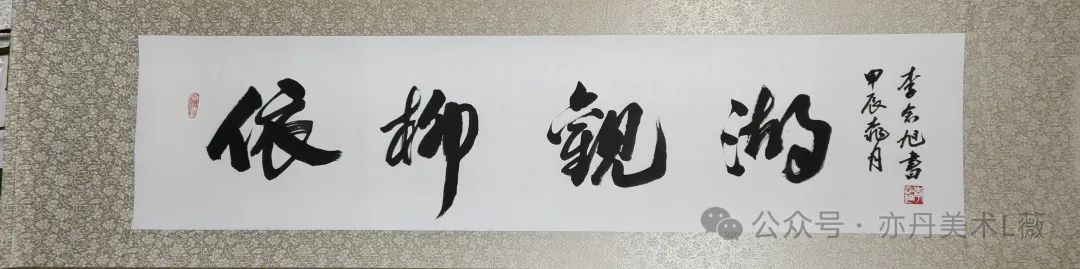 依柳觀湖
甲辰桃月
李旭書
公众号 · 亦丹美术L薇